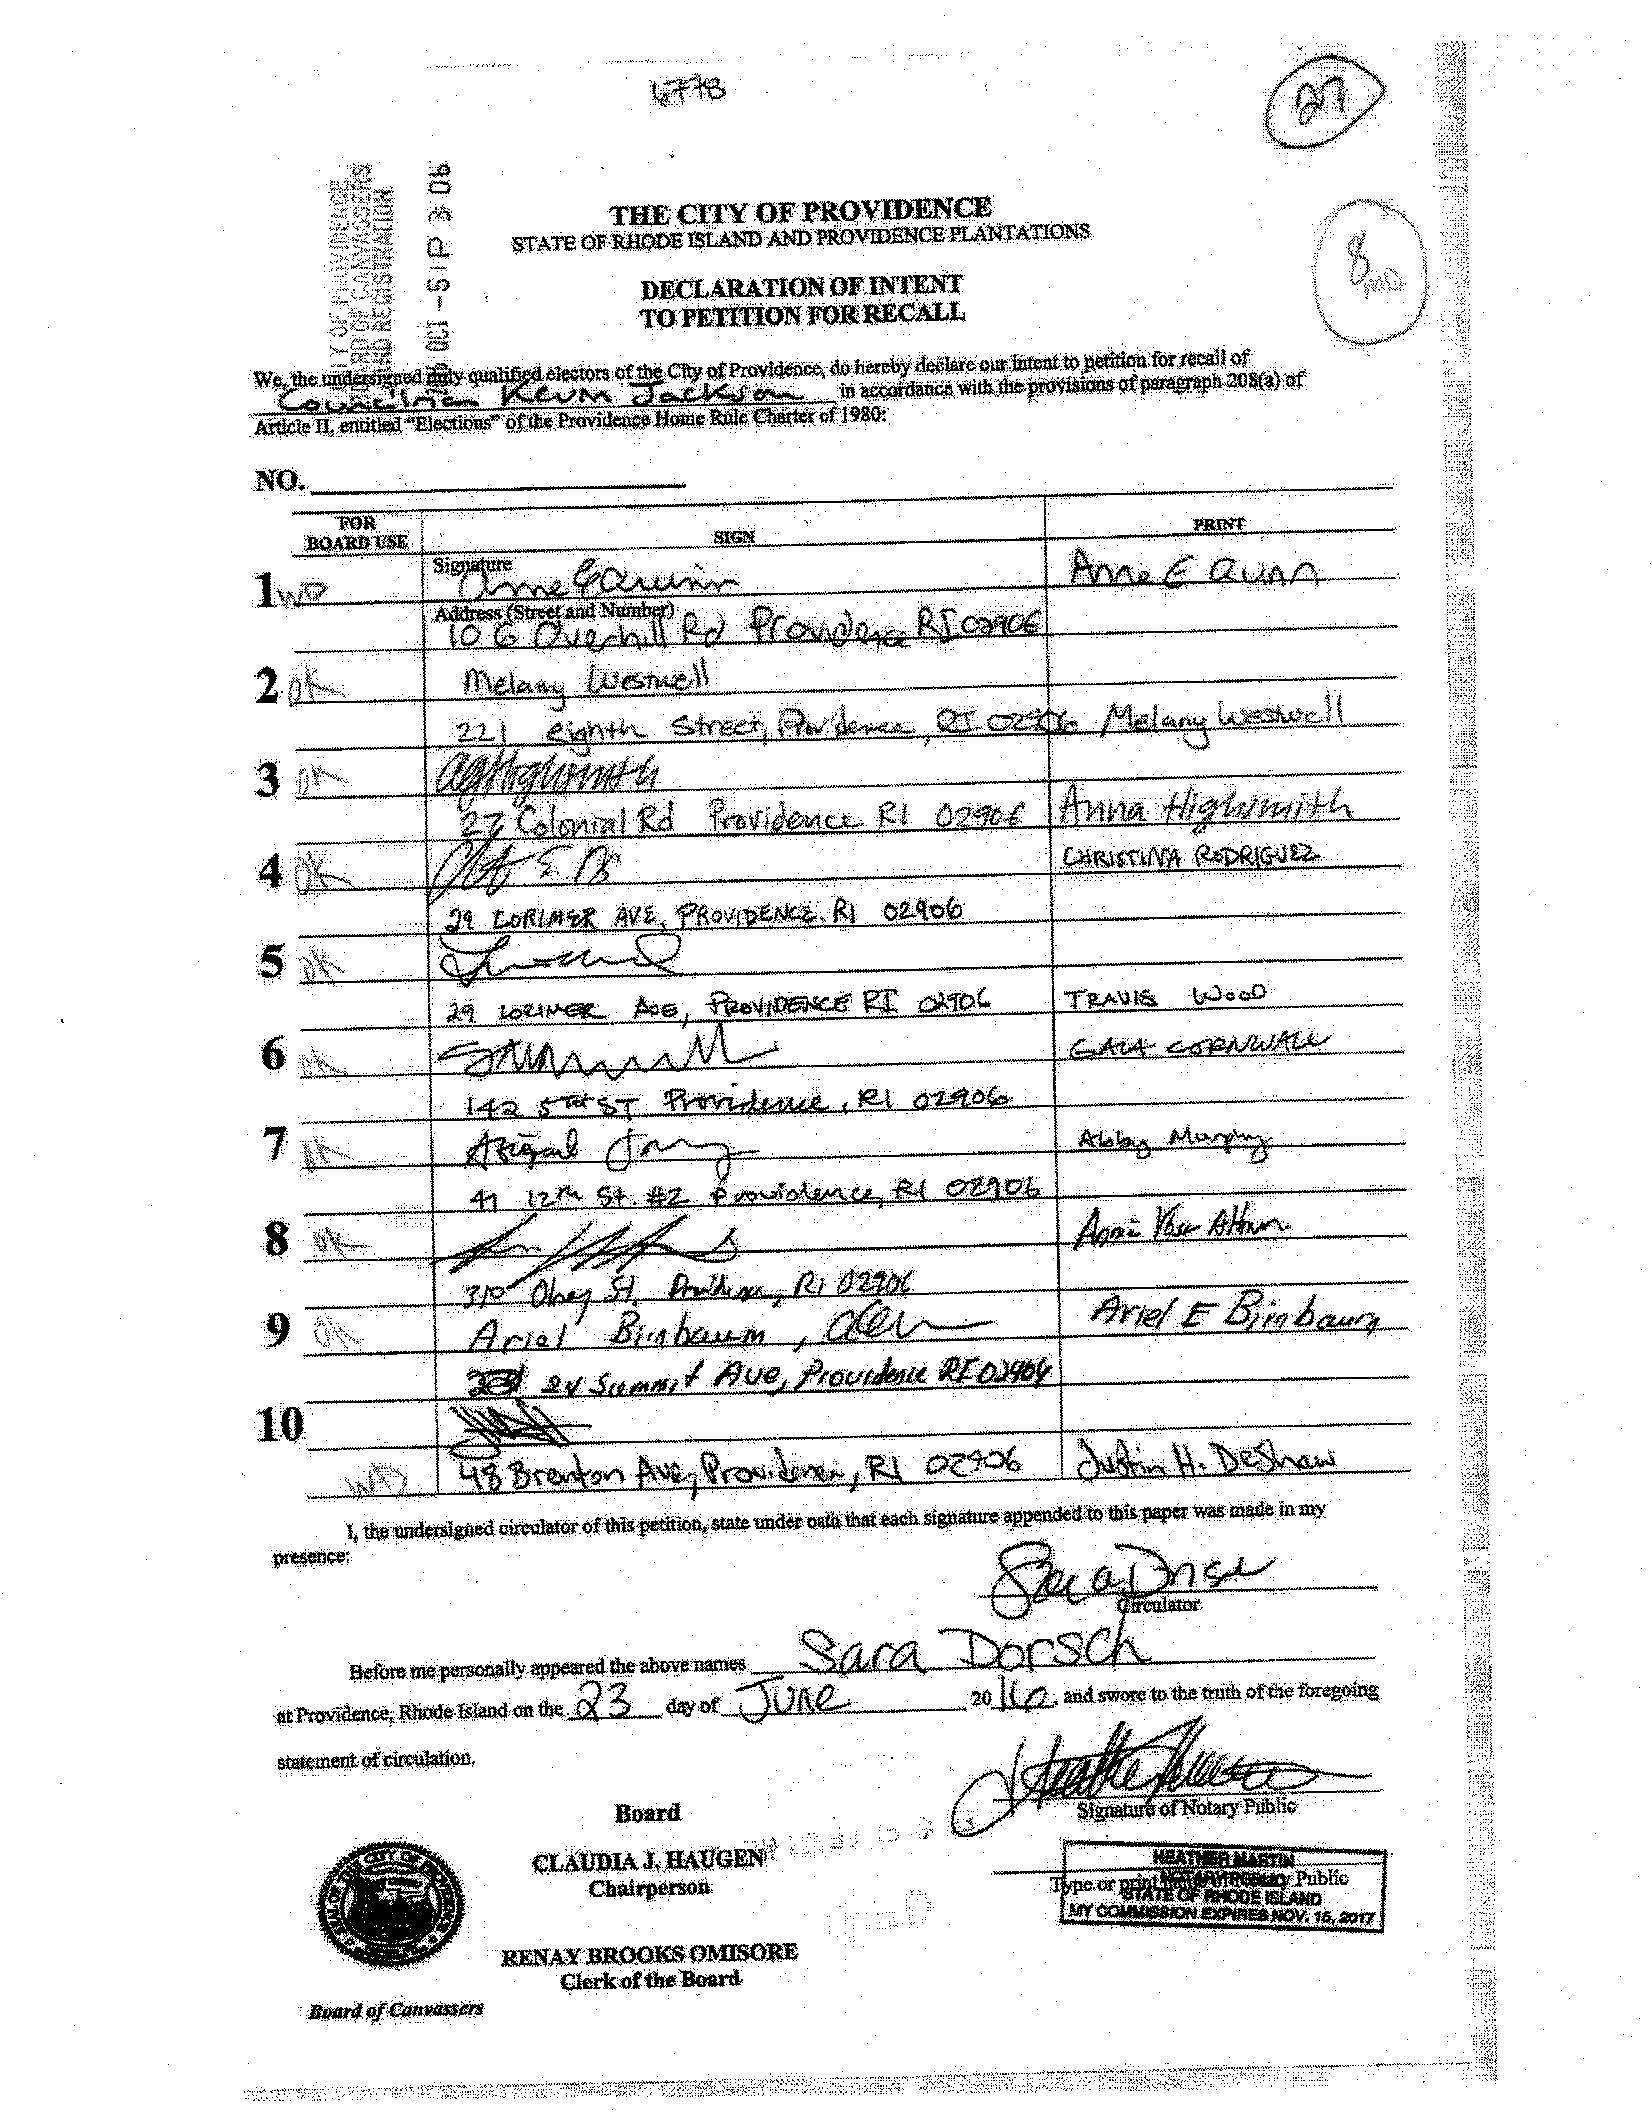 6778
27
8
THE CITY OF PROVIDENCE
STATE OF RHODE ISLAND AND PROVIDENCE PLANTATIONS
DECLARATION OF INTENT
TO PETITION FOR RECALL
We, the undersigned duly qualified electors of the City of Providence, do hereby declare our intent to petition for recall of
Councilman Kevin Jackson in accordance with the provisions of paragraph 208(a) of
Article II, entitled "Elections" of the Providence Home Rule Charter of 1980:
NO.
FOR BOARD USE SIGN PRINT
Signature
1 WD Anne E Quinn Anne E Quinn
Address (Street and Number)
106 Overhill Rd Providence RI 02906
2 OK Melany Westwell
221 eighth Street, Providence, RI 02906 Melany Westwell
3 OK
27 Colonial Rd Providence RI 02906 Anna Highsmith
4 OK CHRISTINA RODRIGUEZ
29 LORIMER AVE, PROVIDENCE, RI 02906
5 OK
29 LORIMER AVE, PROVIDENCE RI 02906 TRAVIS WOOD
6 OK GAIA CORNWALL
142 5TH ST Providence, RI 02906
7 OK Abigail Abby Murphy
41 12th St #2 Providence, RI 02906
8 OK
310 Olney St. Providence, RI 02906
9 OK Ariel Birnbaum, Ariel E Birnbaum
24 Summit Ave, Providence RI 02906
10
WD 48 Brenton Ave, Providence, RI 02906 Justin H. DeShaw
I, the undersigned circulator of this petition, state under oath that each signature appended to this paper was made in my
presence:
Sara Dorsch
Circulator
Before me personally appeared the above names Sara Dorsch
at Providence, Rhode Island on the 23 day of June 2016, and swore to the truth of the foregoing
statement of circulation.
Signature of Notary Public
Board
CLAUDIA J. HAUGEN
Chairperson
HEATHER MARTIN
Type or print Public
STATE OF RHODE ISLAND
MY COMMISSION EXPIRES NOV. 15, 2017
RENAY BROOKS OMISORE
Clerk of the Board
Board of Canvassers